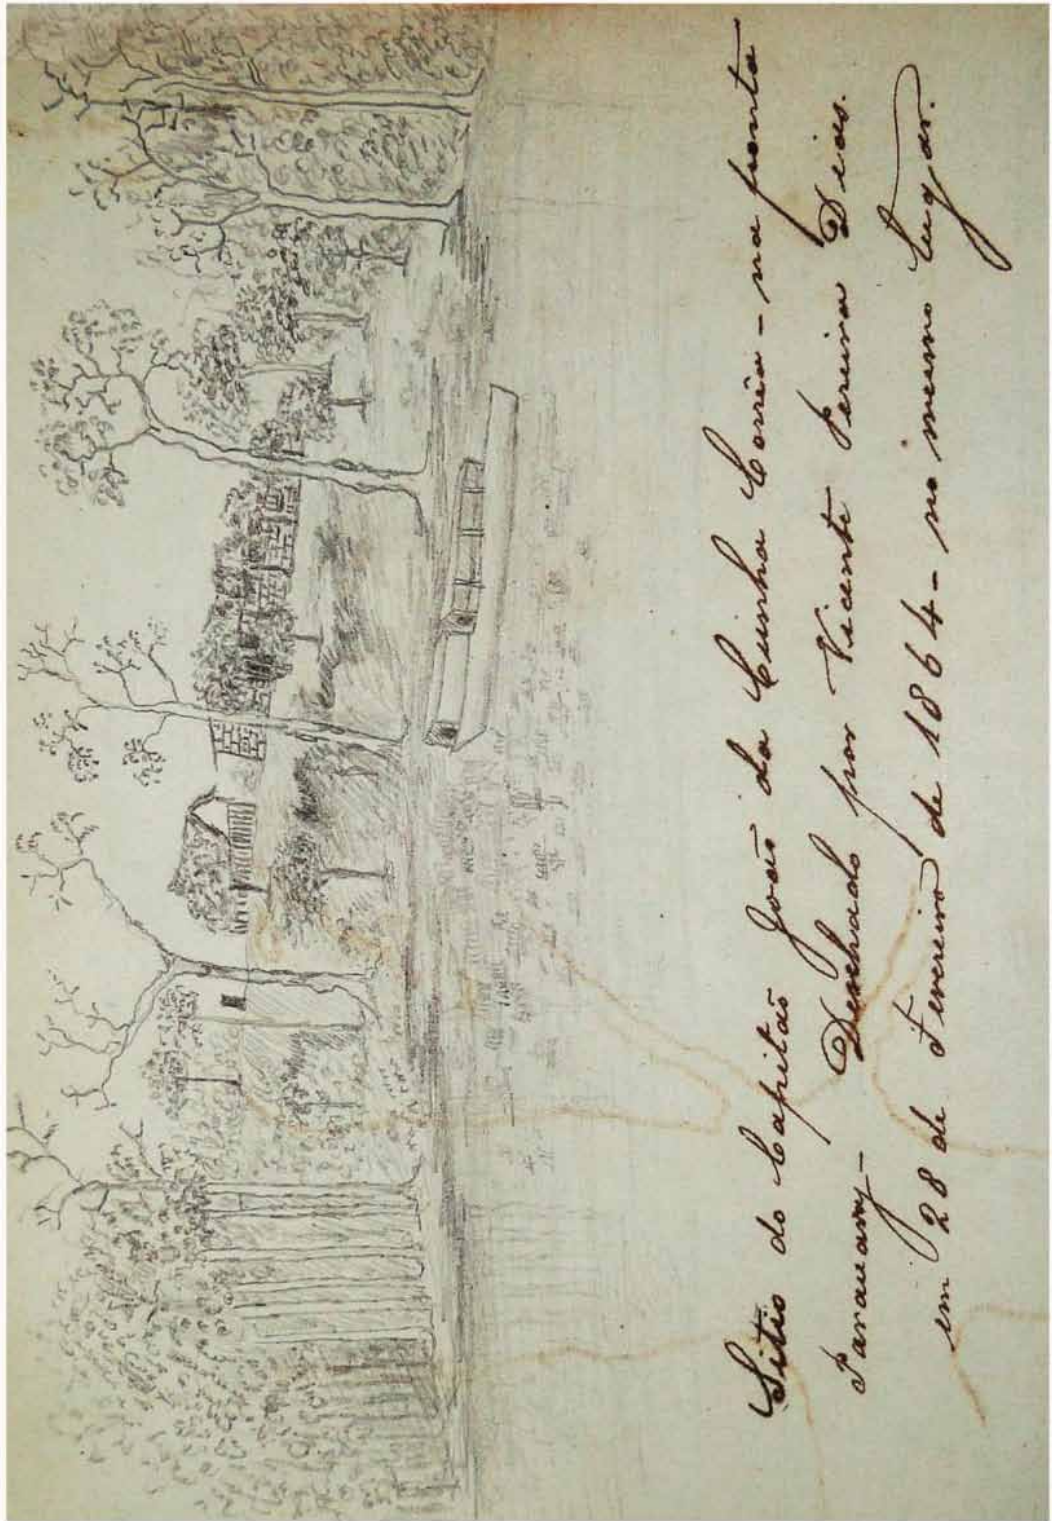 Sitio do Capitão João da Cunha Corrêa - na ponta
Desenhado por Vicente Pereira Dias.
em 28 de Fevereiro de 1864 - no mesmo lugar.